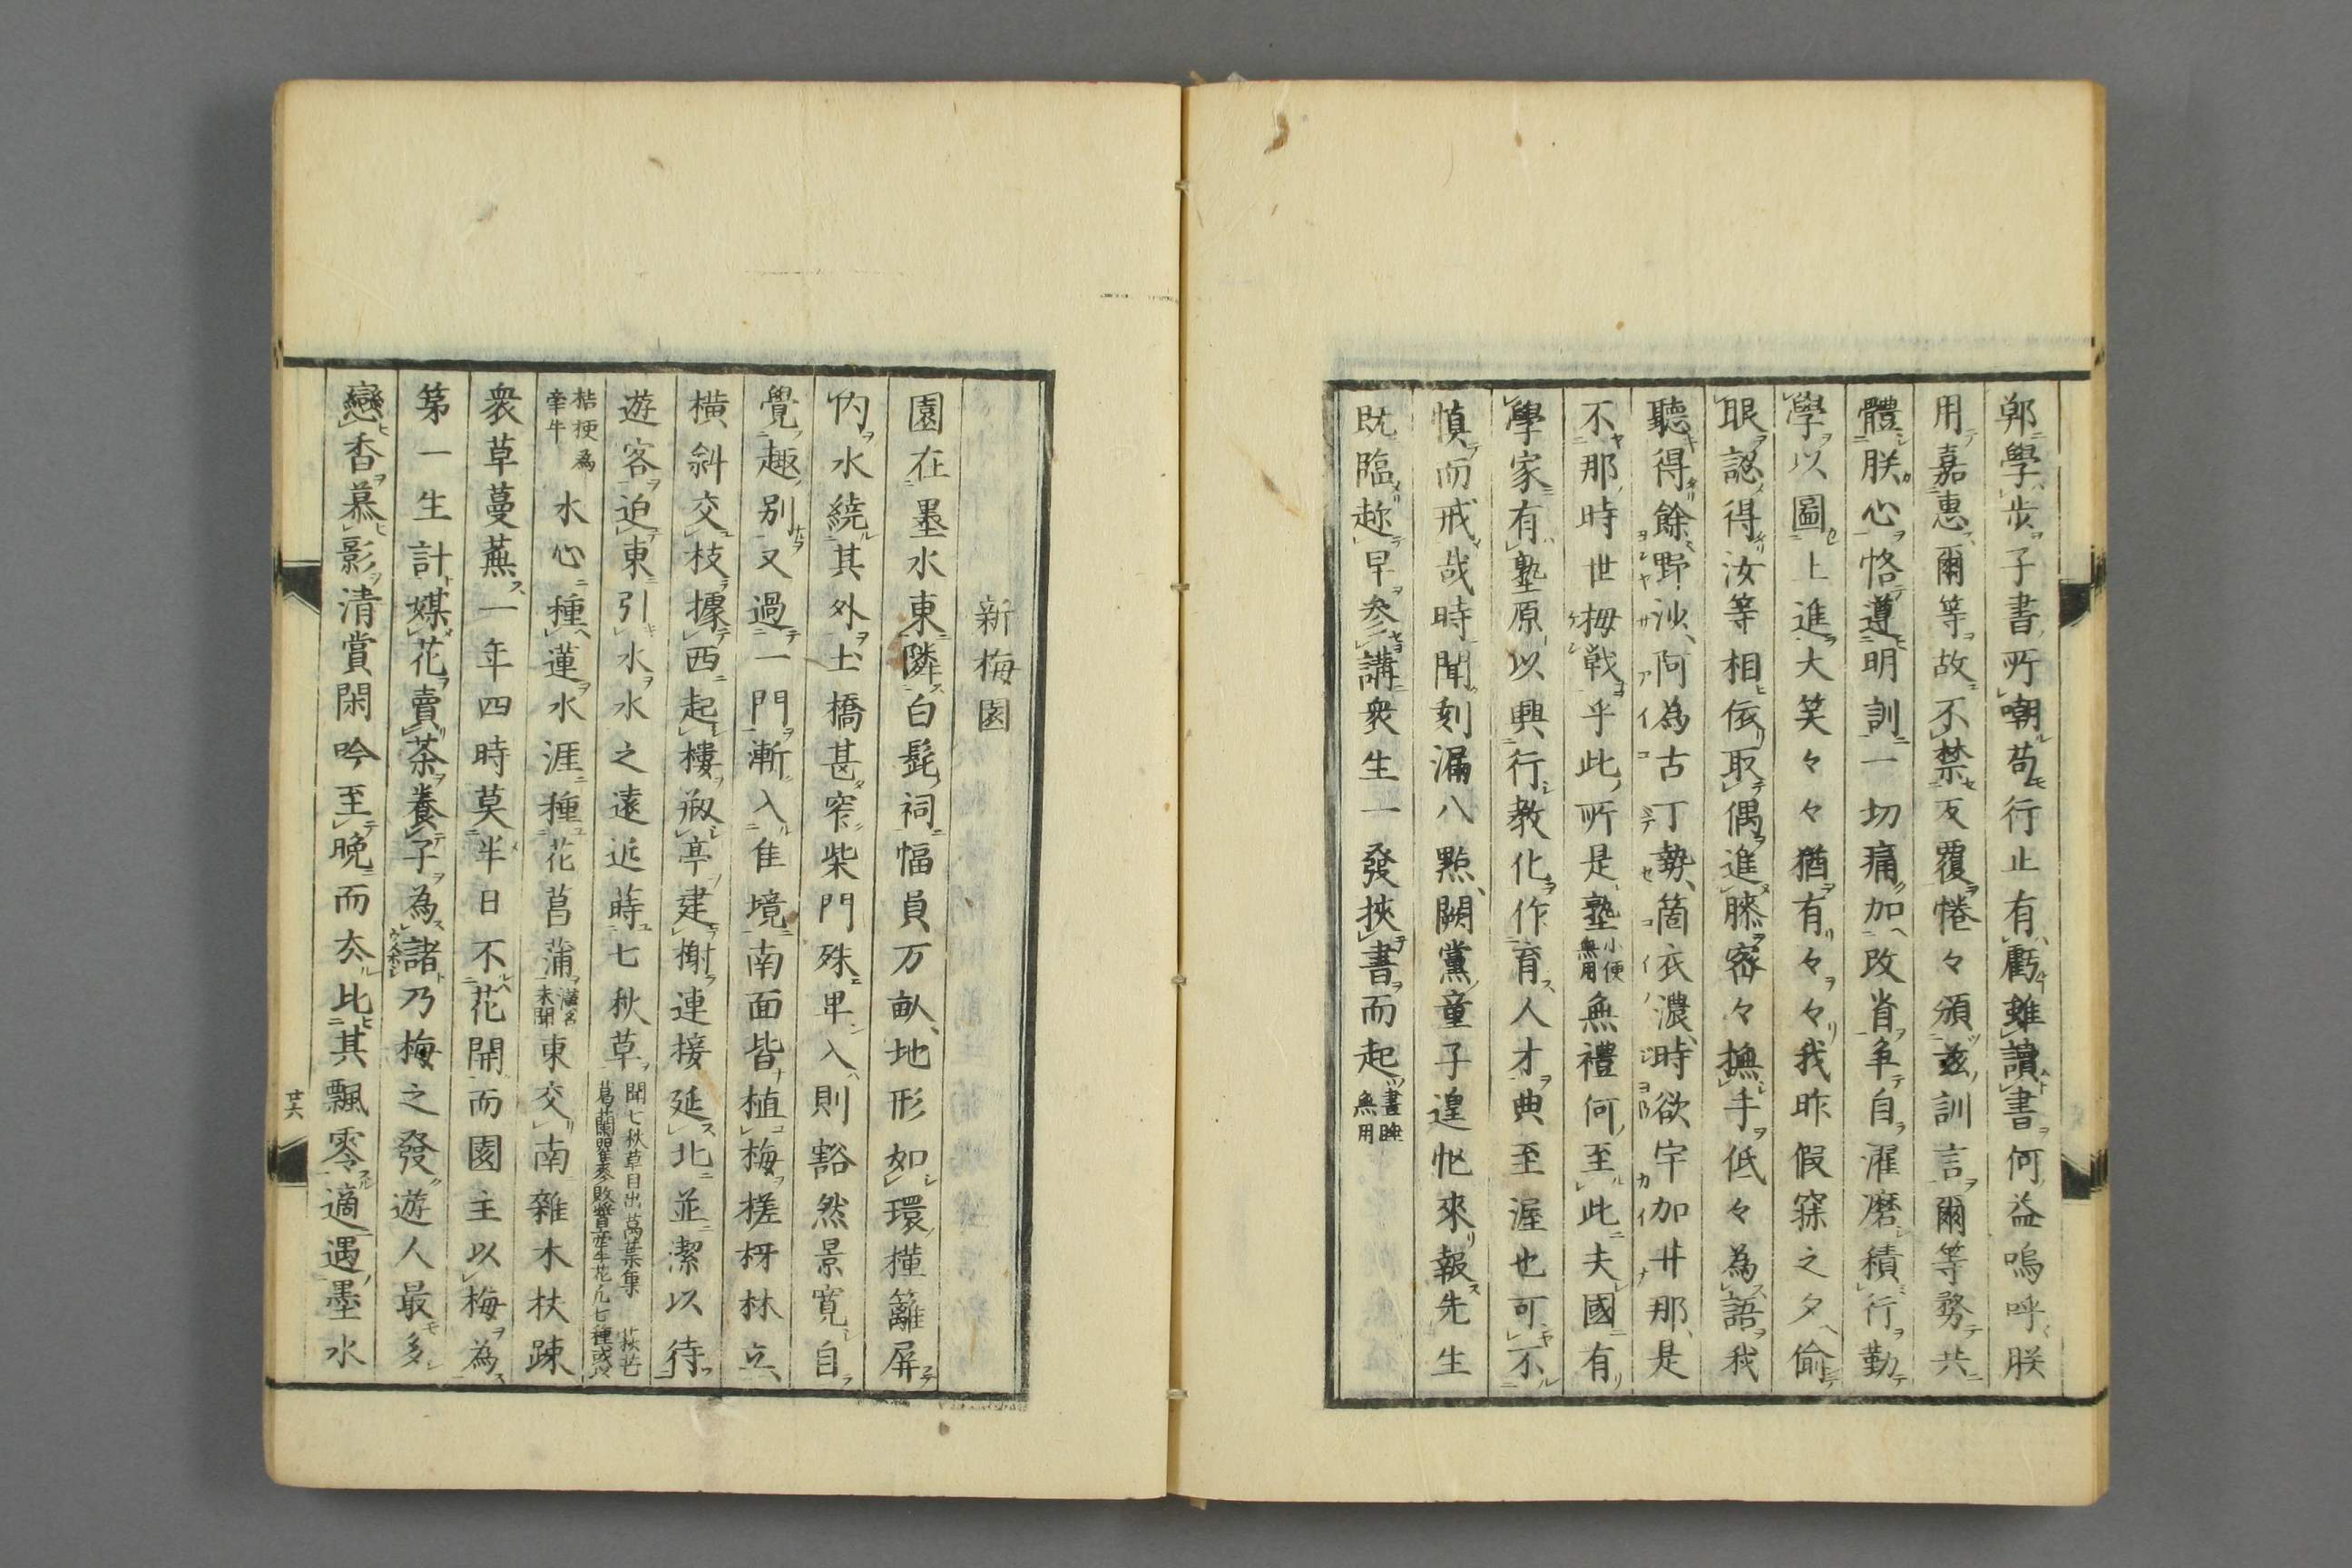 鄭學步子書所嘲苟行止有虧雖讀書何益嗚呼朕
用嘉惠爾等故不禁反覆惓々頒茲訓言爾等務共
體朕心恪遵明訓一切痛加改省争自濯磨積行勤
學以圖上進大笑々々猶有々々我昨假寐之夕偷
眼認得汝等相依取偶進膝密々撫手低々為語我
聽得餘野沙阿為古丁勢箇衣濃時欲宇加廾那是
不那時世梅戦乎此所是塾小便無用無禮何至此夫國有
學家有塾原以興行教化作育人才典至渥也可不
慎而戒哉時聞刻漏八點闕黨童子遑忙來報先生
既臨趂早参講衆生一發挾書而起晝睡無用
新梅園
園在墨水東隣白髭祠幅員万畝地形如環槿籬屏
内水繞其外土橋甚窄柴門殊卑入則豁然景寛自
覺趣别又過一門漸入佳境南面皆植梅槎枒林立
橫斜交枝據西起樓瓹亭建榭連接延北並潔以待
遊客迫東引水水之遠近蒔七秋草聞七秋草目出萬葉集 萩芒葛蘭瞿麥敗醬牽牛花凡七種或以
桔梗為牽牛 水心種蓮水涯種花菖蒲滿名未聞東交南雜木扶踈
衆草蔓蕪一年四時莫半日不花開而園主以梅為
第一生計媒花賣茶養子為諸乃梅之發遊人最多
戀香慕影清賞閑吟至晩而夯比其飄零適遇墨水
廿六